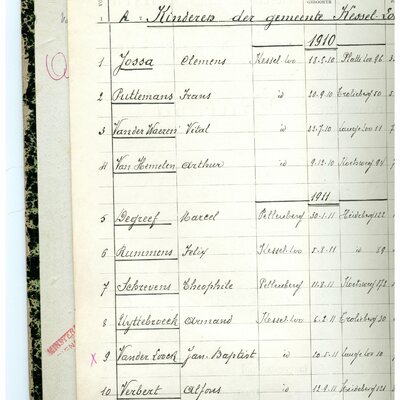 A. Kinderen der gemeente Kessel-Lo
1910
1 Jossa Clemens Kessel-Loo 13-2-10 Platte Loo 96
2 Puttemans Frans id 20-9-10 50
3 Vander Waeren Vital id 22-7-10 Lange Loo 11
4 Van Hemelen Arthur id 9-12-10
1911
5 Degreef Marcel Pellenberg 30-1-11 122
6 Rummens Felix Kessel-Loo 5-8-11 id
7 Schrevens Theophile Pellenberg 11-8-11
8 Uyttebroeck Armand Kessel-Loo 6-2-11 30
x 9 Vander Loock Jan-Baptist id 20-5-11 Lange Loo 10
10 Verbert Alfons id 12-8-11